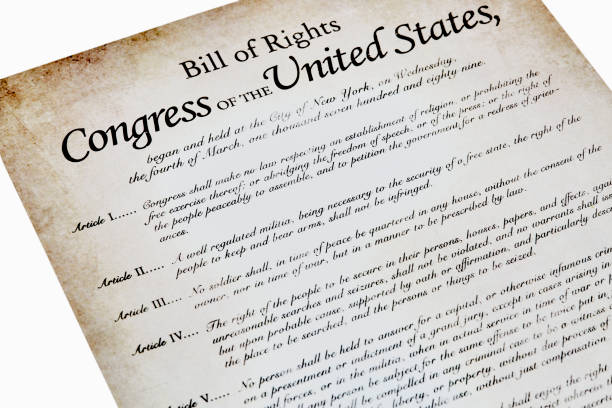 Bill of Rights
Congress OF THE United States,
began and held at the City of New York, on Wednesday,
the fourth of March, one thousand seven hundred and eighty nine.
Article I...... Congress shall make no law respecting an establishment of religion, or prohibiting the
free exercise thereof; or abridging the freedom of speech, or of the press; or the right of
the people peaceably to assemble, and to petition the government for a redress of griev-
ances.
Article II..... A well regulated militia, being necessary to the security of a free state, the right of the
people to keep and bear arms, shall not be infringed.
Article III.... No soldier shall, in time of peace be quartered in any house, without the consent of the
owner, nor in time of war, but in a manner to be prescribed by law.
Article IV.... The right of the people to be secure in their persons, houses, papers, and effects, against
unreasonable searches and seizures, shall not be violated, and no warrants shall issue
but upon probable cause, supported by oath or affirmation, and particularly
the place to be searched, and the persons or things to be seized.
Article V..... No person shall be held to answer for a capital, or otherwise infamous
on a presentment or indictment of a grand jury, except in cases arising in
or in the militia, when in actual service in time of war or
shall any person be subject for the same offense to be twice put in
shall be compelled in any criminal case to be a witness
liberty, or property, without due process of
use, without just compensation
shall enjoy the right